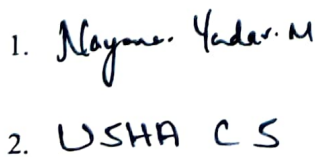 1. Nayana. Yadav. M
2. USHA C S